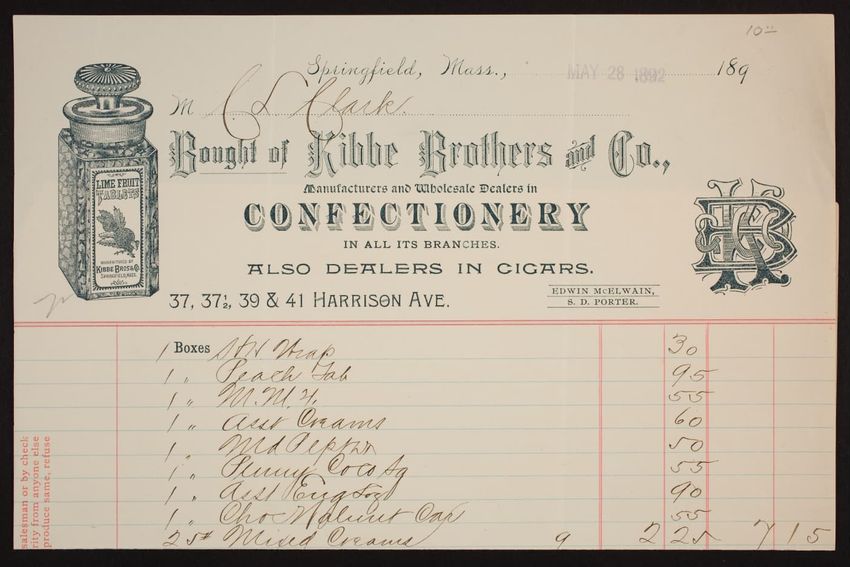 10 00
Springfield, Mass., MAY 28 1892 189
M C L Clark.
Bought of Kibbe Brothers and Co.,
Manufacturers and Wholesale Dealers in
CONFECTIONERY
IN ALL ITS BRANCHES.
ALSO DEALERS IN CIGARS.
37, 37½, 39 & 41 HARRISON AVE.
EDWIN McELWAIN,
S. D. PORTER.
LIME FRUIT
TABLETS
MANUFACTURED BY
KIBBE BROS & Co.
SPRINGFIELD, MASS.
KBC
1 Boxes Wrap 30
1 " Peach Tab 95
1 " M.M. 55
1 " Asst Creams 60
1 " Md Pep 50
1 " Penny Coco 55
1 " Asst Eng 90
1 " Cho Walnut Cap 55
25# Mixed Creams 9 2 25 7 15
salesman or by check
rity from anyone else
produce same, refuse